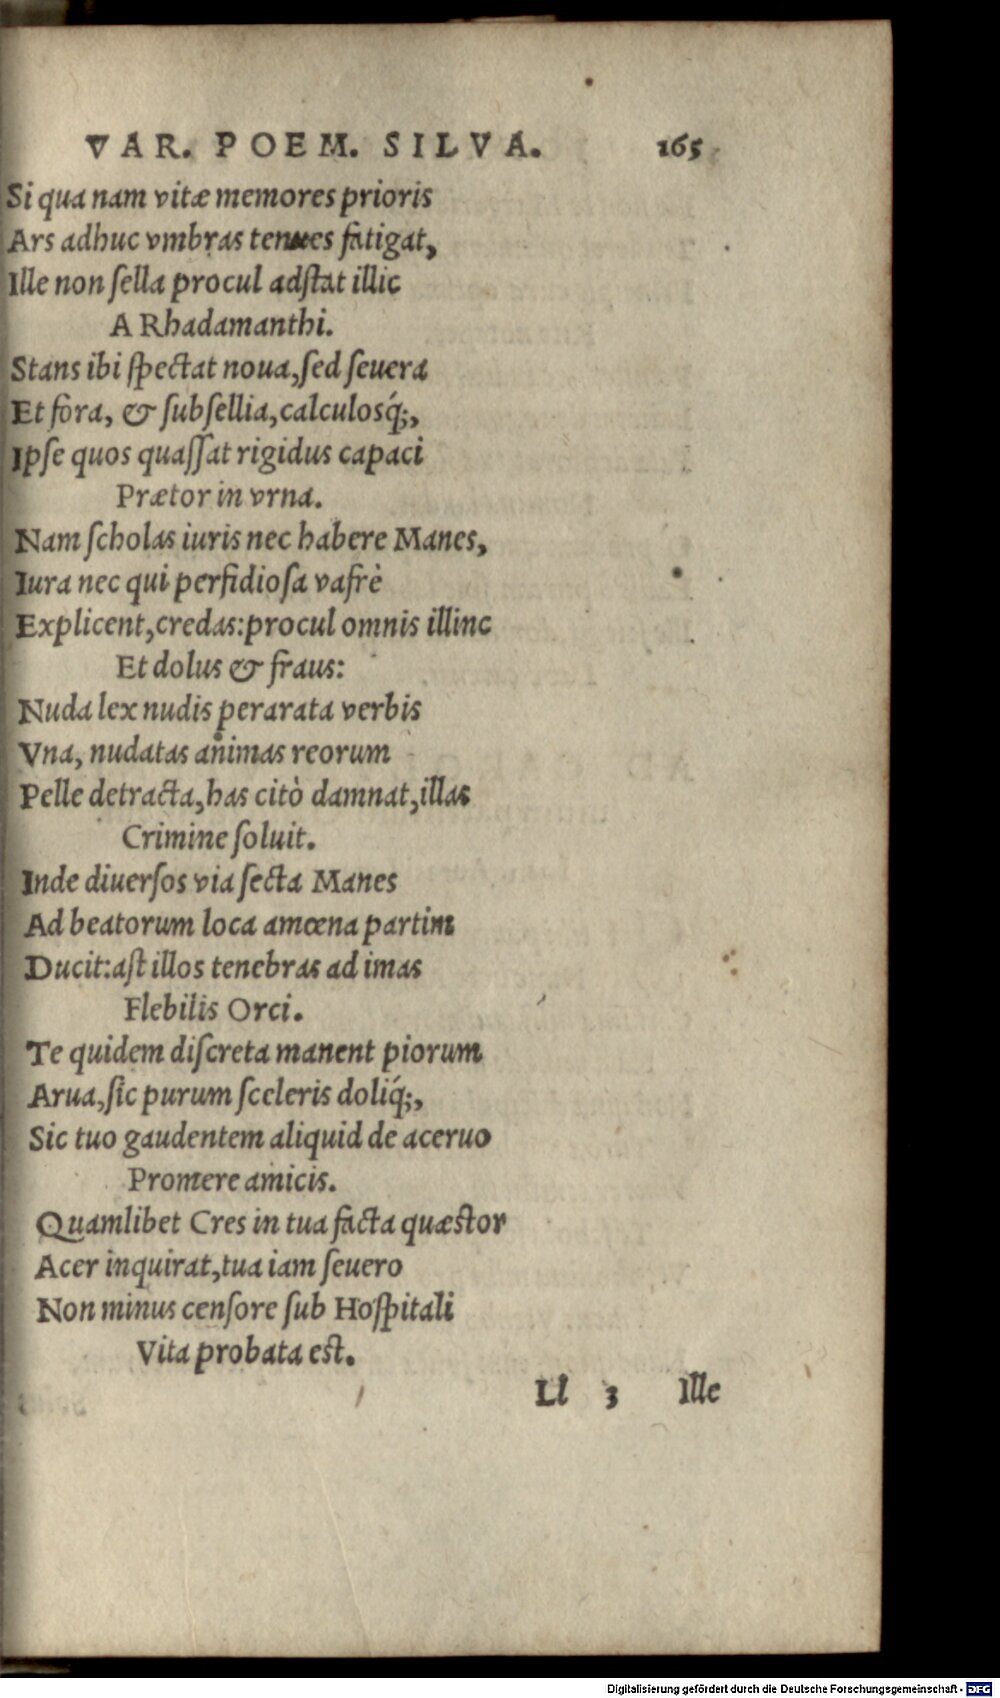 VAR. POEM. SILVA. 165
Si qua nam vitæ memores prioris
Ars adhuc vmbras tenues fatigat,
Ille non ſella procul adſtat illic
A Rhadamanthi.
Stans ibi ſpectat noua, ſed ſeuera
Et fora, & ſubſellia, calculosq́;,
Ipſe quos quaſſat rigidus capaci
Prætor in vrna.
Nam ſcholas iuris nec habere Manes,
Iura nec qui perfidioſa vafrè
Explicent, credas: procul omnis illinc
Et dolus & fraus:
Nuda lex nudis perarata verbis
Vna, nudatas animas reorum
Pelle detracta, has citò damnat, illas
Crimine ſoluit.
Inde diuerſos via ſecta Manes
Ad beatorum loca amœna partim
Ducit: aſt illos tenebras ad imas
Flebilis Orci.
Te quidem diſcreta manent piorum
Arua, ſic purum ſceleris doliq́;,
Sic tuo gaudentem aliquid de aceruo
Promere amicis.
Quamlibet Cres in tua facta quæstor
Acer inquirat, tua iam ſeuero
Non minus cenſore ſub Hoſpitali
Vita probata est.
Ll 3 Ille
Digitalisierung gefördert durch die Deutsche Forschungsgemeinschaft - DFG